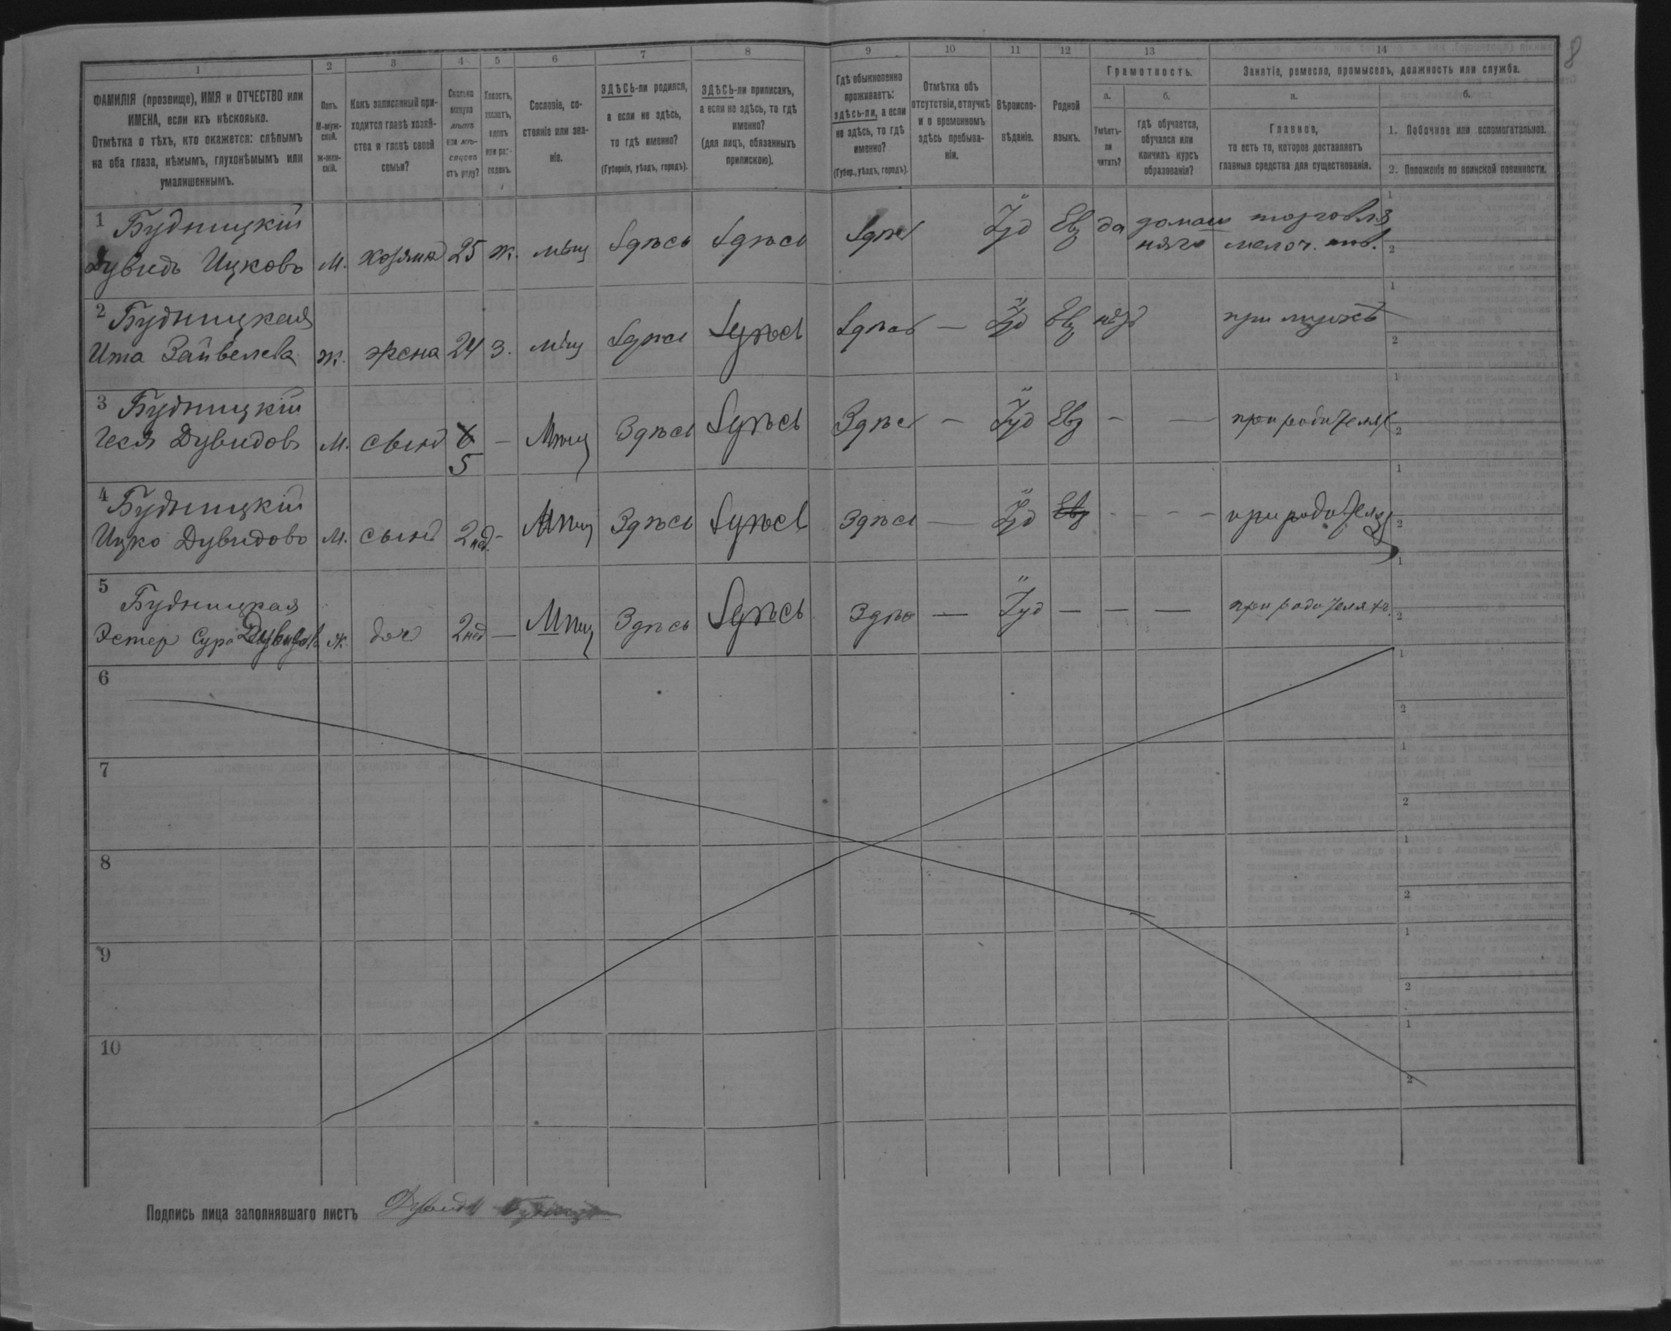 8
1 2 3 4 5 6 7 8 9 10 11 12 13 14
ФАМИЛІЯ (прозвище), ИМЯ и ОТЧЕСТВО или
ИМЕНА, если ихъ нѣсколько.
Отмѣтка о тѣхъ, кто окажется: слѣпымъ
на оба глаза, нѣмымъ, глухонѣмымъ или
умалишеннымъ.
Полъ.
М-муж-
ской.
Ж-жен-
скій.
Какъ записанный при-
ходится главѣ хозяй-
ства и главѣ своей
семьи?
Сколько
минуло
лѣтъ
или мѣ-
сяцевъ
отъ роду?
Холостъ,
женатъ,
вдовъ
или раз-
веденъ.
Сословіе, со-
стояніе или зва-
ніе.
ЗДѢСЬ-ли родился,
а если не здѣсь,
то гдѣ именно?
(Губернія, уѣздъ, городъ).
ЗДѢСЬ-ли приписанъ,
а если не здѣсь, то гдѣ
именно?
(для лицъ, обязанныхъ
припискою).
Гдѣ обыкновенно
проживаетъ:
здѣсь-ли, а если
не здѣсь, то гдѣ
именно?
(Губер., уѣздъ, городъ).
Отмѣтка объ
отсутствіи, отлучкѣ
и о временномъ
здѣсь пребыва-
ніи.
Вѣроиспо-
вѣданіе.
Родной
языкъ.
Грамотность.
а.
Умѣетъ-
ли
читать?
б.
гдѣ обучается,
обучался или
кончилъ курсъ
образованія?
Занятіе, ремесло, промыселъ, должность или служба.
а.
Главное,
то есть то, которое доставляетъ
главныя средства для существованія.
б.
1. Побочное или вспомогательное.
2. Положеніе по воинской повинности.
1 Будницкій
Дувидъ Ицковъ М. хозяинъ 25 ж. мѣщ Здѣсь Здѣсь Здѣсь Іуд Евр да домаш торговля
няго мелоч.
2 Будницкая
Ита Зайвелева ж. жена 24 з. мѣщ Здѣсь Здѣсь Здѣсь — Іуд Евр нѣтъ при мужѣ
3 Будницкій
Дувидовъ М. сынъ 5 — Мѣщ Здѣсь Здѣсь Здѣсь — Іуд Евр — — при родителяхъ
4 Будницкій
Ицко Дувидовъ М. сынъ 2 нед. — Мѣщ Здѣсь Здѣсь Здѣсь — Іуд Евр - - - при родителяхъ
5 Будницкая
Эстер Сура Дувидов. ж. доч 2 нед — Мѣщ Здѣсь Здѣсь Здѣсь — Іуд — — — при родителяхъ
6
7
8
9
10
Подпись лица заполнявшаго листъ Дувидъ